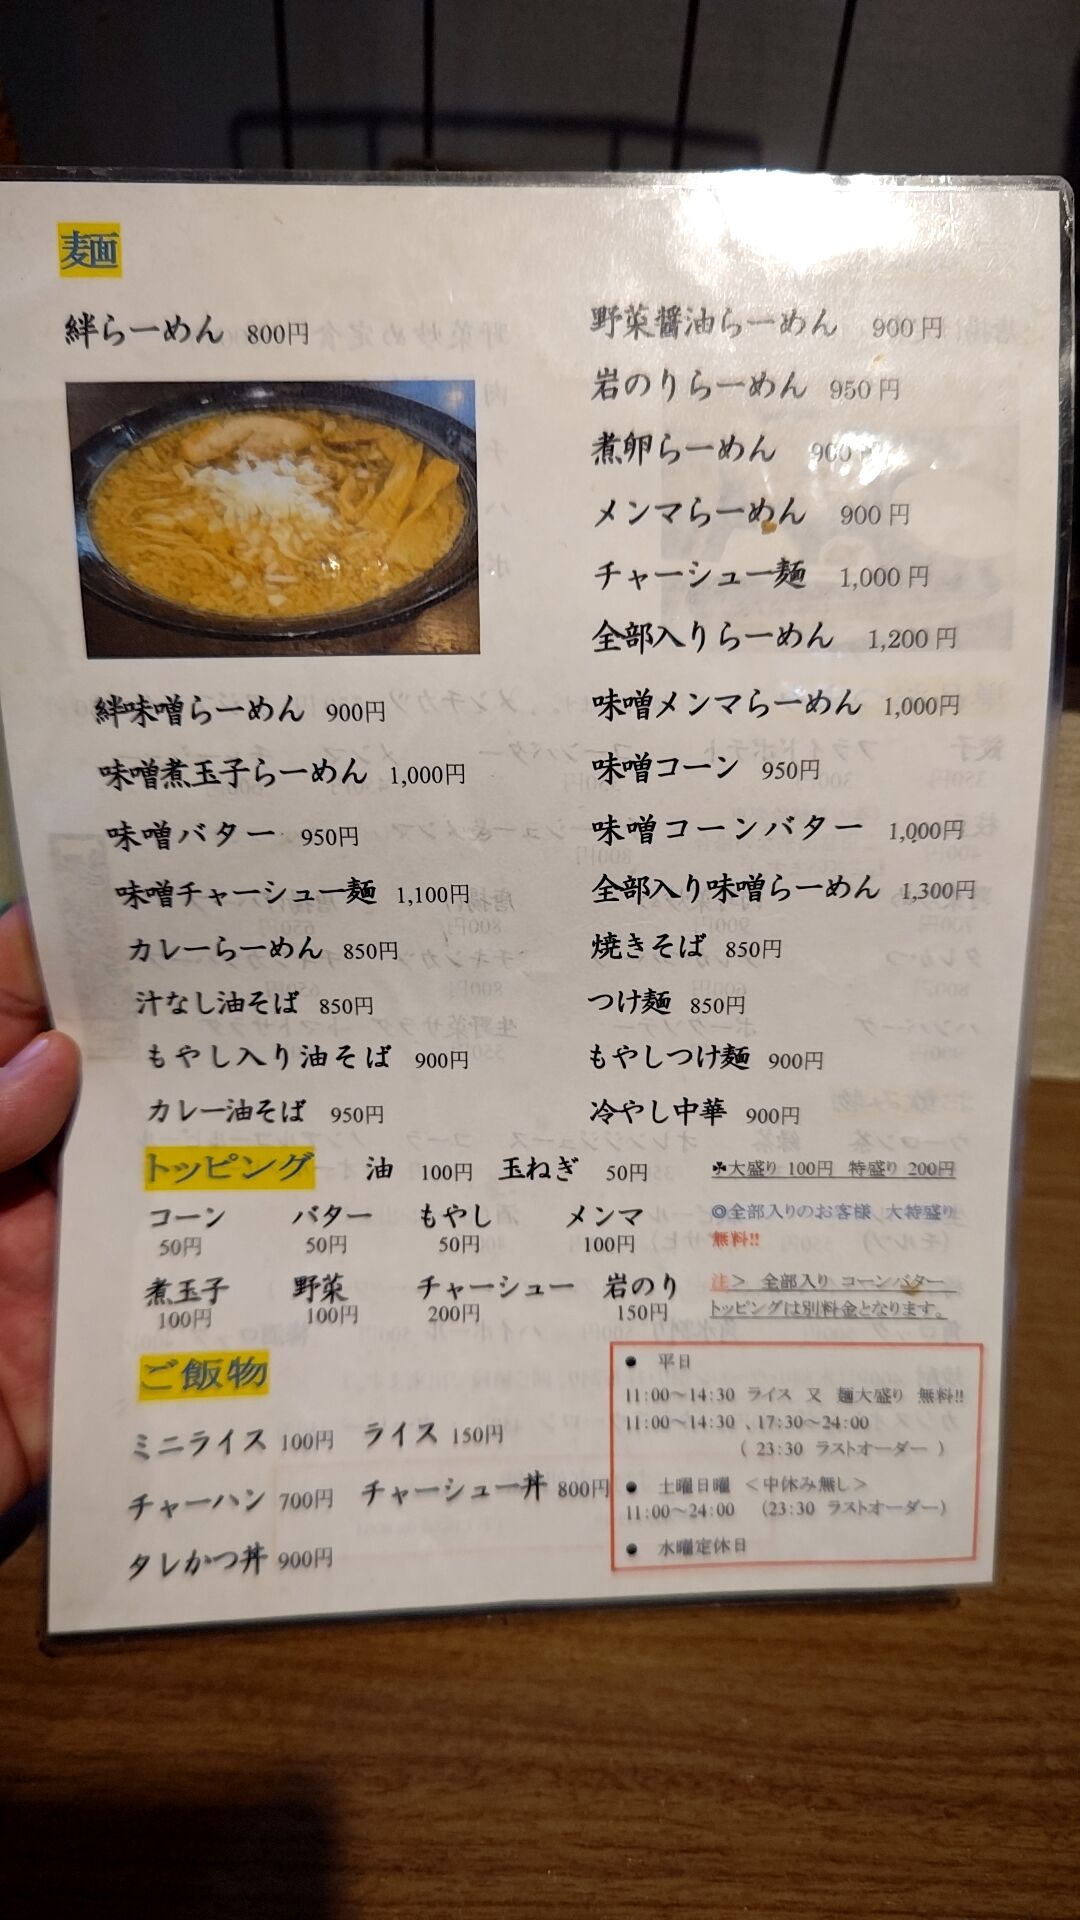 麺
絆らーめん 800円
絆味噌らーめん 900円
味噌煮玉子らーめん 1,000円
味噌バター 950円
味噌チャーシュー麺 1,100円
カレーらーめん 850円
汁なし油そば 850円
もやし入り油そば 900円
カレー油そば 950円
野菜醤油らーめん 900円
岩のりらーめん 950円
煮卵らーめん 900
メンマらーめん 900円
チャーシュー麺 1,000円
全部入りらーめん 1,200円
味噌メンマらーめん 1,000円
味噌コーン 950円
味噌コーンバター 1,000円
全部入り味噌らーめん 1,300円
焼きそば 850円
つけ麺 850円
もやしつけ麺 900円
冷やし中華 900円
トッピング 油 100円 玉ねぎ 50円
コーン バター もやし メンマ
50円 50円 50円 100円
煮玉子 野菜 チャーシュー 岩のり
100円 100円 200円 150円
☘大盛り 100円 特盛り 200円
◎全部入りのお客様 大特盛り
無料!!
注＞ 全部入り コーンバター
トッピングは別料金となります。
ご飯物
ミニライス 100円 ライス 150円
チャーハン 700円 チャーシュー丼 800円
タレかつ丼 900円
● 平日
11:00〜14:30 ライス 又 麺大盛り 無料!!
11:00〜14:30 、17:30〜24:00
( 23:30 ラストオーダー )
● 土曜日曜 ＜中休み無し＞
11:00〜24:00 (23:30 ラストオーダー)
● 水曜定休日